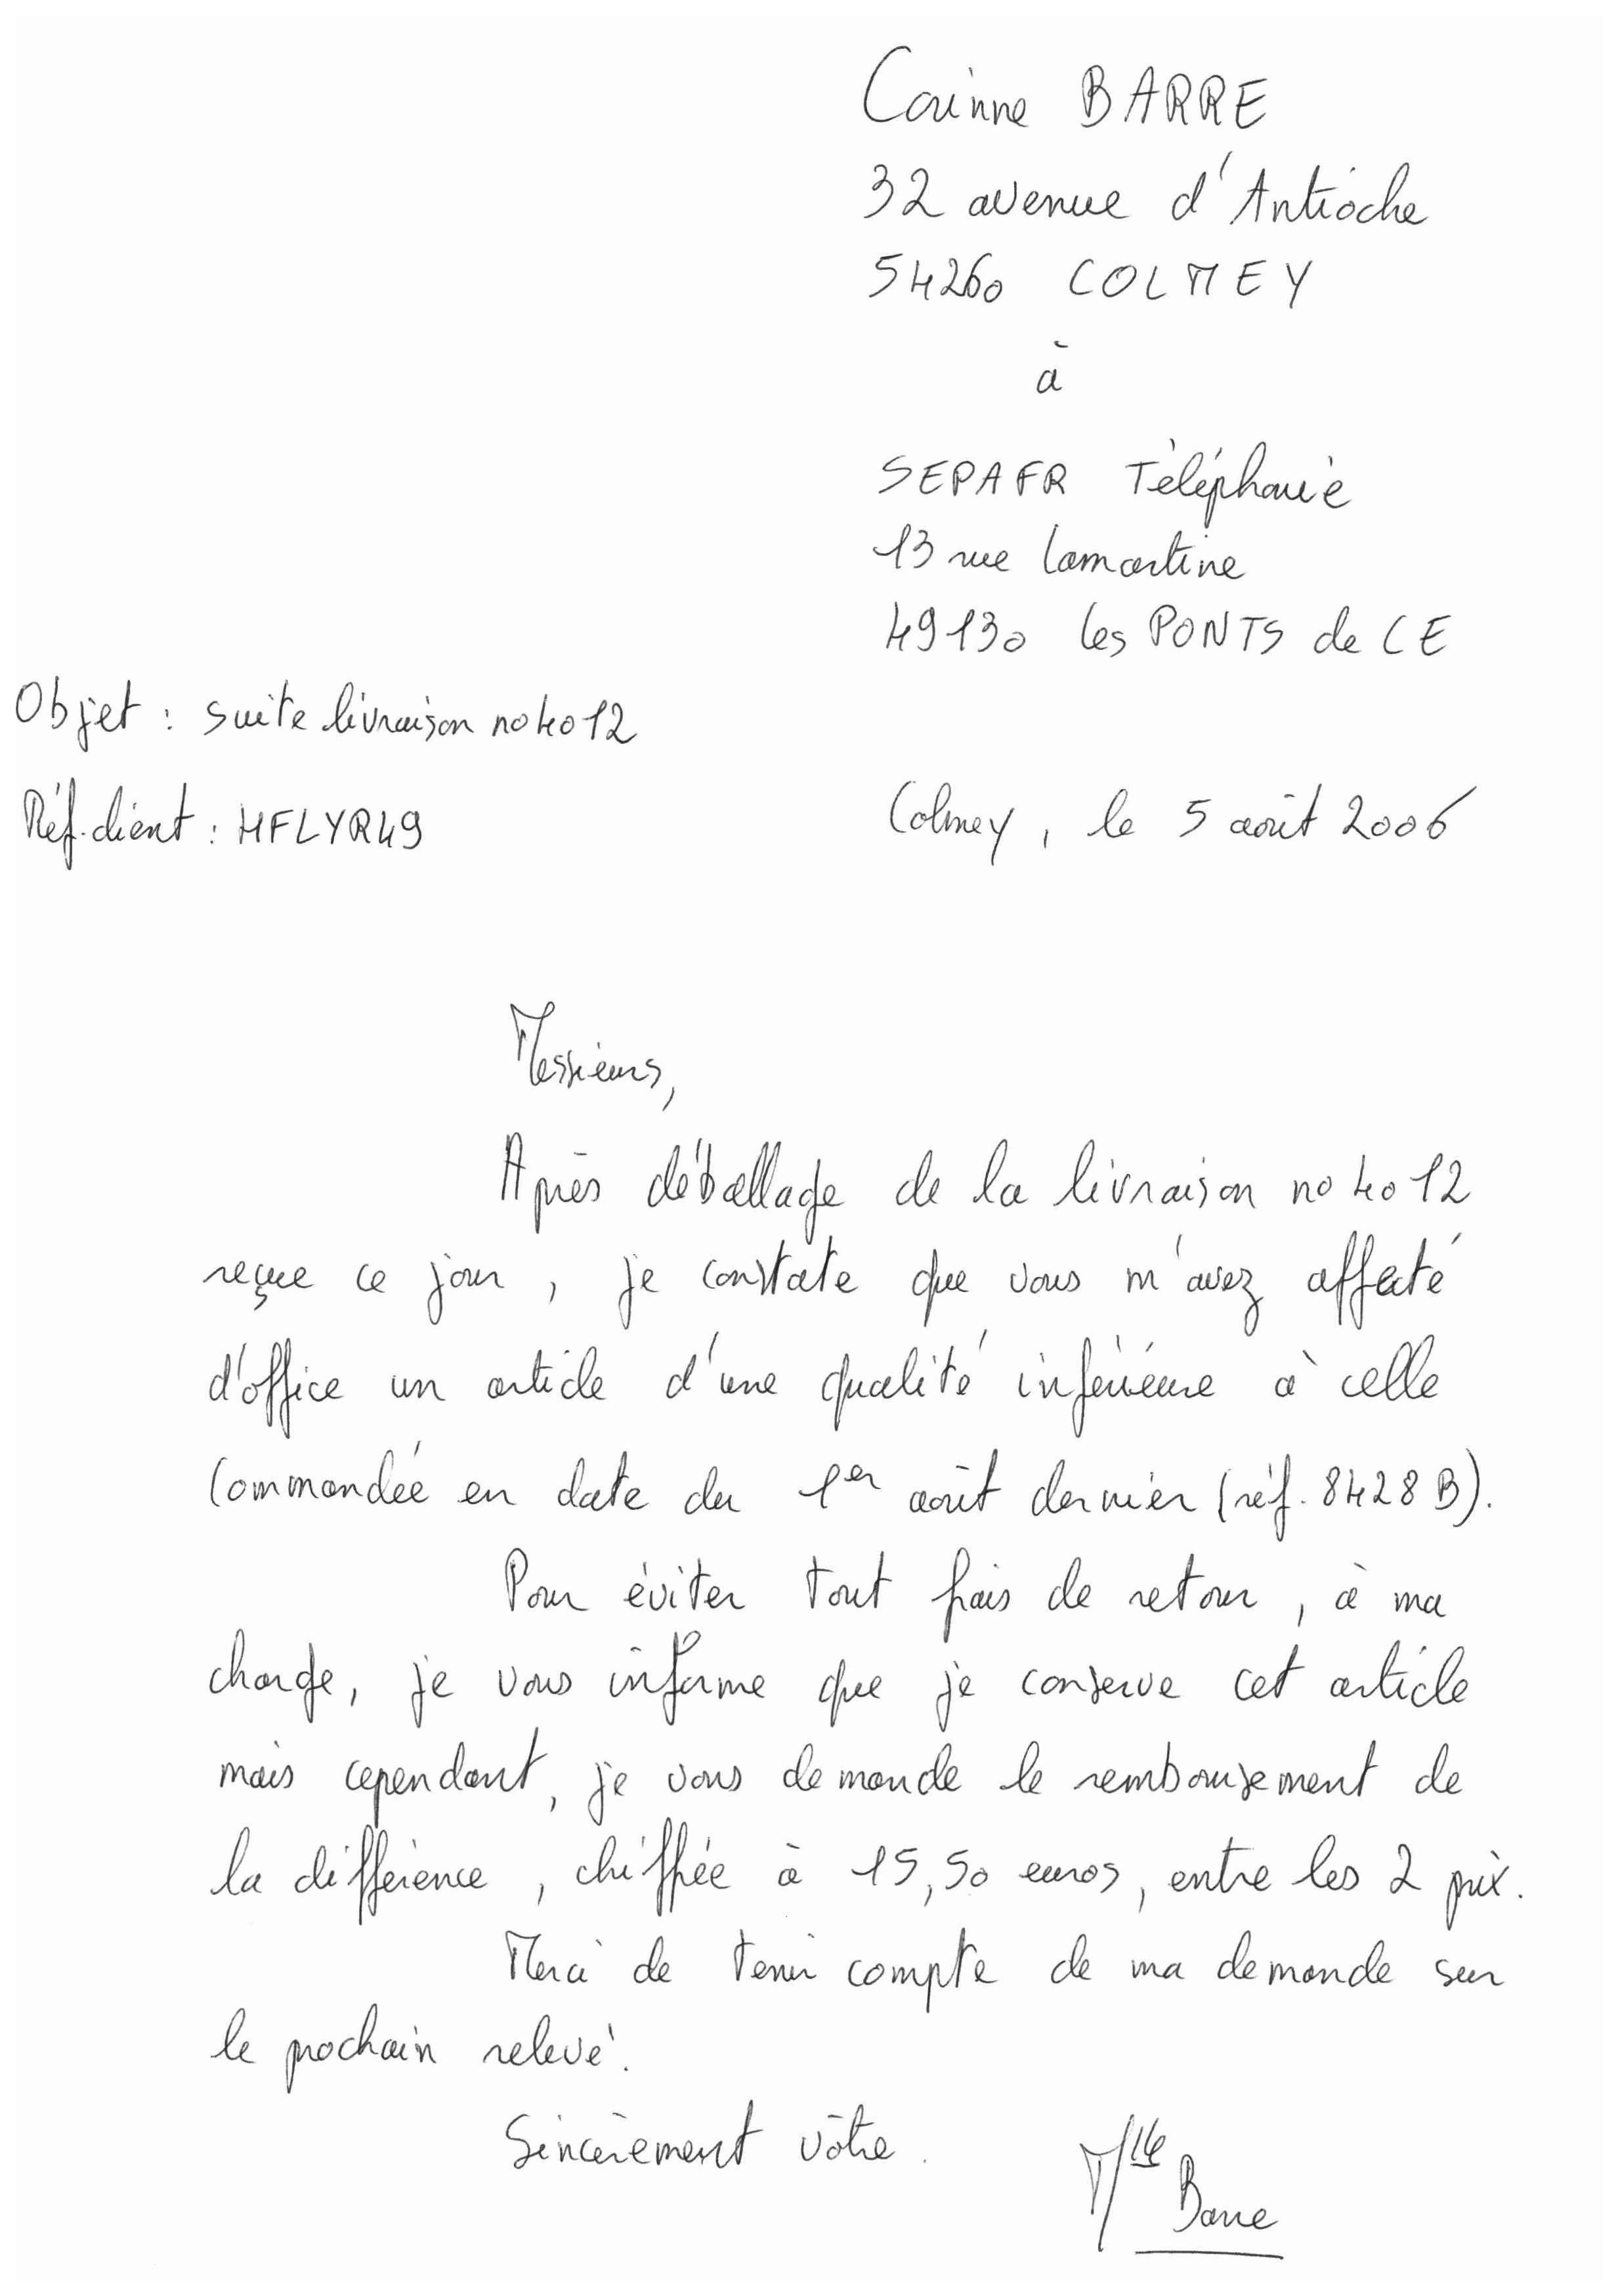 Corinne BARRE
32 avenue d'Antioche
54260 COLMEY
à
SEPAFR Téléphonie
13 rue Lamartine
49130 les PONTS de CE
Objet : suite livraison no 4012
Réf. client : HFLYR49
Colmey, le 5 août 2006
Messieurs,
Après déballage de la livraison no 4012
reçue ce jour, je constate que vous m'avez affecté
d'office un article d'une qualité inférieure à celle
commandée en date du 1er août dernier (réf. 8428 B).
Pour éviter tout frais de retour, à ma
charge, je vous informe que je conserve cet article
mais cependant, je vous demande le remboursement de
la différence, chiffrée à 15,50 euros, entre les 2 prix.
Merci de tenir compte de ma demande sur
le prochain relevé.
Sincèrement vôtre.
Mlle Barre